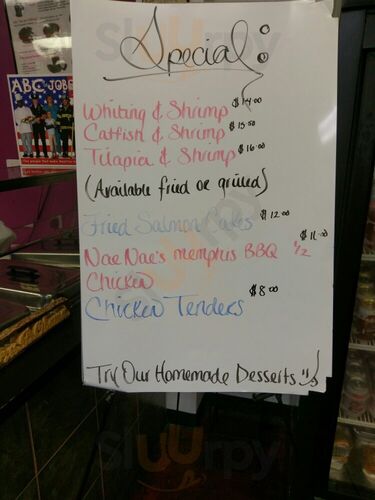 Special:
Whiting & Shrimp $14.00
Catfish & Shrimp $15.50
Tilapia & Shrimp $16.00
(Available fried or grilled)
Fried Salmon Cakes $12.00
Nae Nae's memphis BBQ 1/2 $11.00
Chicken
Chicken Tenders $8.00
Try Our Homemade Desserts
ABC JOBS
Sluurpy
Sluurpy
Sluurpy